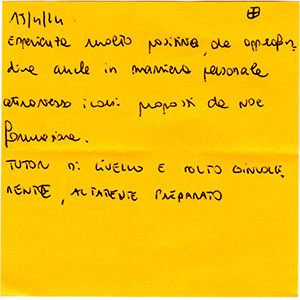 13/4/14
Esperienza molto positiva, da approfon-
dire anche in maniera personale
attraverso i corsi proposti da voe
Formazione.
TUTOR DI LIVELLO E MOLTO COINVOL
MENTE, ALTAMENTE PREPARATO